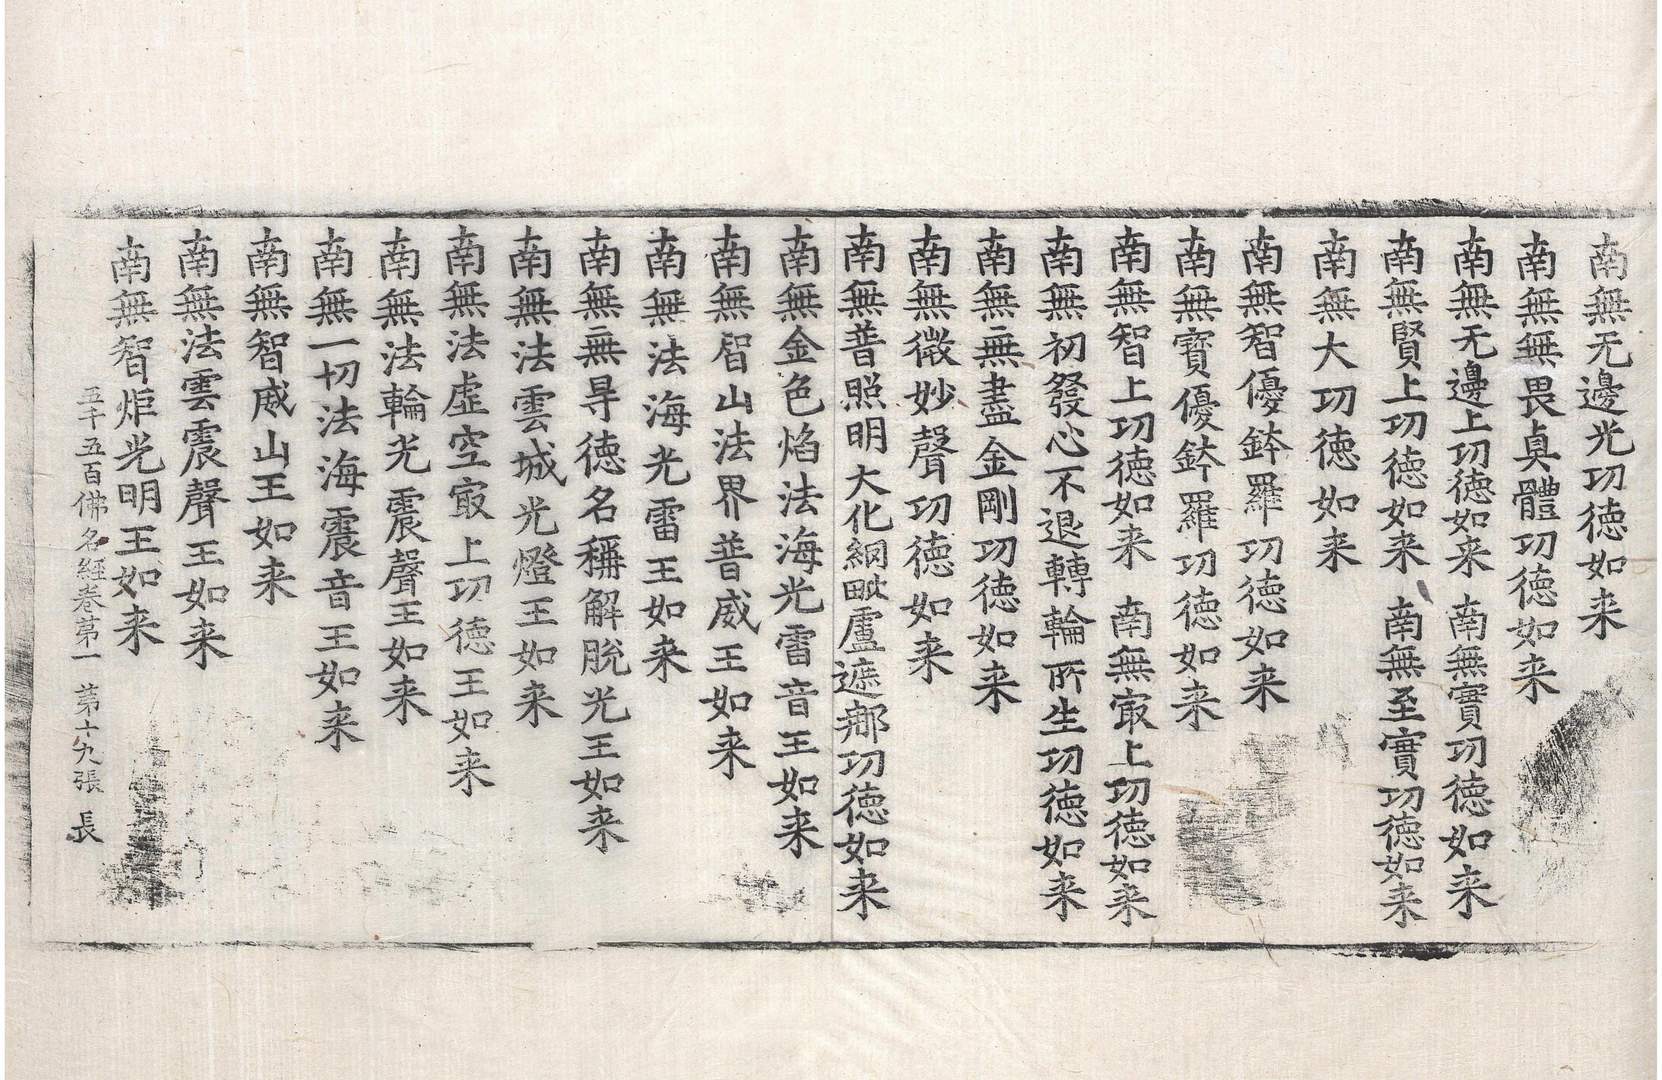 南無无邊光功徳如来
南無無畏貞體功德如来
南無无邊上功徳如来　南無實功徳如来
南無賢上功徳如来　南無至實功徳如来
南無大功徳如来
南無智優鉢羅功徳如来
南無寶優鉢羅功徳如来
南無智上功徳如来　南無㝡上功徳如来
南無初發心不退轉輪所生功徳如来
南無無盡金剛功徳如来
南無微妙聲功徳如来
南無普照明大化網毗盧遮那功徳如来
南無金色焰法海光雷音王如来
南無智山法界普威王如来
南無法海光雷王如来
南無無㝵德名稱解脫光王如来
南無法雲城光燈王如来
南無法虛空㝡上功德王如来
南無法輪光震聲王如来
南無一切法海震音王如来
南無智威山王如来
南無法雲震聲王如来
南無智炬光明王如来
五千五百佛名經卷苐一　苐十九張　長